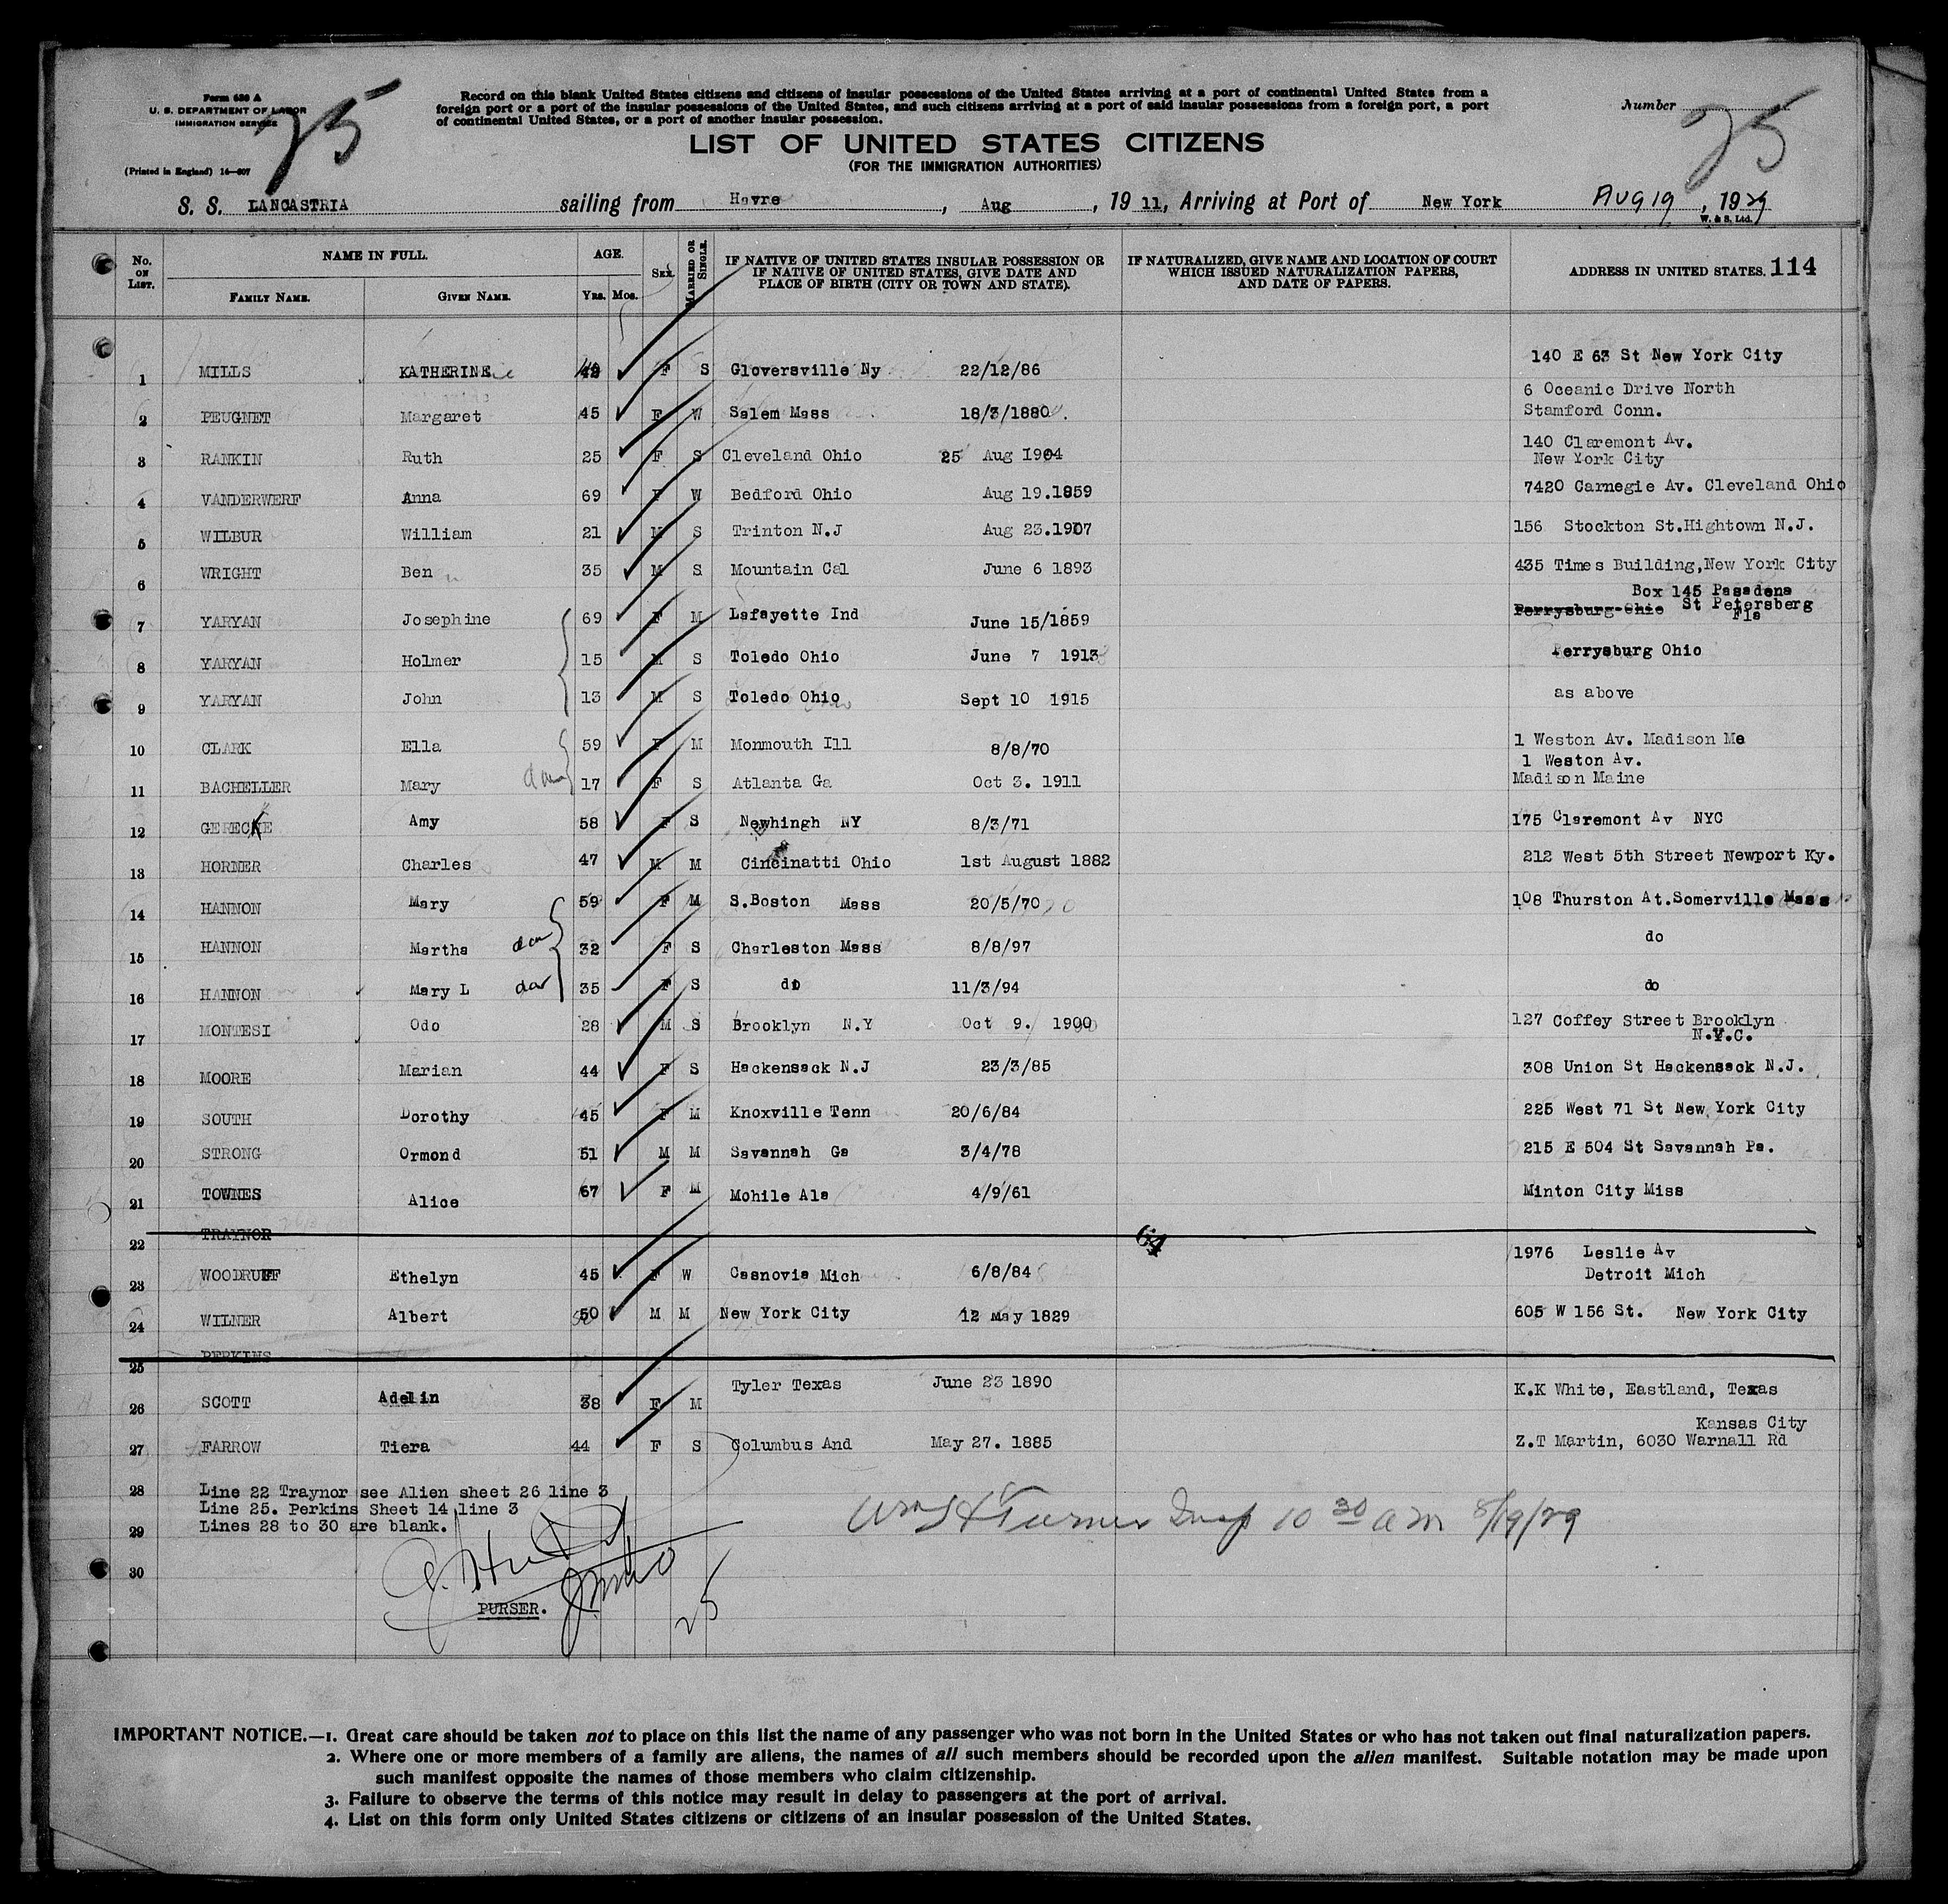 Form 630 A
U. S. DEPARTMENT OF LABOR
IMMIGRATION SERVICE
(Printed in England) 14—807
25
Record on this blank United States citizens and citizens of insular possessions of the United States arriving at a port of continental United States from a
foreign port or a port of the insular possessions of the United States, and such citizens arriving at a port of said insular possessions from a foreign port, a port
of continental United States, or a port of another insular possession.
Number
25
LIST OF UNITED STATES CITIZENS
(FOR THE IMMIGRATION AUTHORITIES)
S. S. LANCASTRIA sailing from Havre, Aug, 19 11, Arriving at Port of New York AUG 19, 1929
W. & S. Ltd.
No. ON LIST. NAME IN FULL. FAMILY NAME. GIVEN NAME. AGE. YRS. MOS. SEX. MARRIED OR SINGLE. IF NATIVE OF UNITED STATES INSULAR POSSESSION OR IF NATIVE OF UNITED STATES, GIVE DATE AND PLACE OF BIRTH (CITY OR TOWN AND STATE). IF NATURALIZED, GIVE NAME AND LOCATION OF COURT WHICH ISSUED NATURALIZATION PAPERS, AND DATE OF PAPERS. ADDRESS IN UNITED STATES. 114
1 MILLS KATHERINE 42 F S Gloversville Ny 22/12/86 140 E 63 St New York City
2 PEUGNET Margaret 45 F W Salem Mass 18/3/1880. 6 Oceanic Drive North Stamford Conn.
3 RANKIN Ruth 25 F S Cleveland Ohio 25 Aug 1904 140 Claremont Av. New York City
4 VANDERWERF Anna 69 F W Bedford Ohio Aug 19.1859 7420 Carnegie Av. Cleveland Ohio
5 WILBUR William 21 M S Trinton N.J Aug 23.1907 156 Stockton St.Hightown N.J.
6 WRIGHT Ben 35 M S Mountain Cal June 6 1893 435 Times Building,New York City
7 YARYAN Josephine 69 F M Lafayette Ind June 15/1859 Box 145 Pasadena Perrysburg Ohio St Petersberg Fla
8 YARYAN Holmer 15 M S Toledo Ohio June 7 1913 Perrysburg Ohio
9 YARYAN John 13 M S Toledo Ohio Sept 10 1915 as above
10 CLARK Ella 59 F M Monmouth Ill 8/8/70 1 Weston Av. Madison Me
11 BACHELLER Mary dau 17 F S Atlanta Ga Oct 3. 1911 1 Weston Av. Madison Maine
12 GERECKE Amy 58 F S Newhingh NY 8/3/71 175 Claremont Av NYC
13 HORNER Charles 47 M M Cincinatti Ohio 1st August 1882 212 West 5th Street Newport Ky.
14 HANNON Mary 59 F M S.Boston Mass 20/5/70 108 Thurston At.Somerville Mass
15 HANNON Martha dau 32 F S Charleston Mass 8/8/97 do
16 HANNON Mary L dau 35 F S do 11/3/94 do
17 MONTESI Odo 28 M S Brooklyn N.Y Oct 9. 1900 127 Coffey Street Brooklyn N.Y.C.
18 MOORE Marian 44 F S Hackensack N.J 23/3/85 308 Union St Hackensack N.J.
19 SOUTH Dorothy 45 F M Knoxville Tenn 20/6/84 225 West 71 St New York City
20 STRONG Ormond 51 M M Savannah Ga 3/4/78 215 E 504 St Savannah Pa.
21 TOWNES Alice 67 F M Mohile Ala 4/9/61 Minton City Miss
22 TRAYNOR
64
23 WOODRUFF Ethelyn 45 F W Casnovia Mich 6/8/84 1976 Leslie Av Detroit Mich
24 WILNER Albert 50 M M New York City 12 May 1829 605 W 156 St. New York City
25 PERKINS
26 SCOTT Adelin 38 F M Tyler Texas June 23 1890 K.K White, Eastland, Texas
27 FARROW Tiera 44 F S Columbus And May 27. 1885 Kansas City Z.T Martin, 6030 Warnall Rd
28 Line 22 Traynor see Alien sheet 26 line 3
Line 25. Perkins Sheet 14 line 3
29 Lines 28 to 30 are blank.
Wm H Turner Insp 10 30 am 8/19/29
30
PURSER.
25
IMPORTANT NOTICE.—1. Great care should be taken not to place on this list the name of any passenger who was not born in the United States or who has not taken out final naturalization papers.
2. Where one or more members of a family are aliens, the names of all such members should be recorded upon the alien manifest. Suitable notation may be made upon
such manifest opposite the names of those members who claim citizenship.
3. Failure to observe the terms of this notice may result in delay to passengers at the port of arrival.
4. List on this form only United States citizens or citizens of an insular possession of the United States.